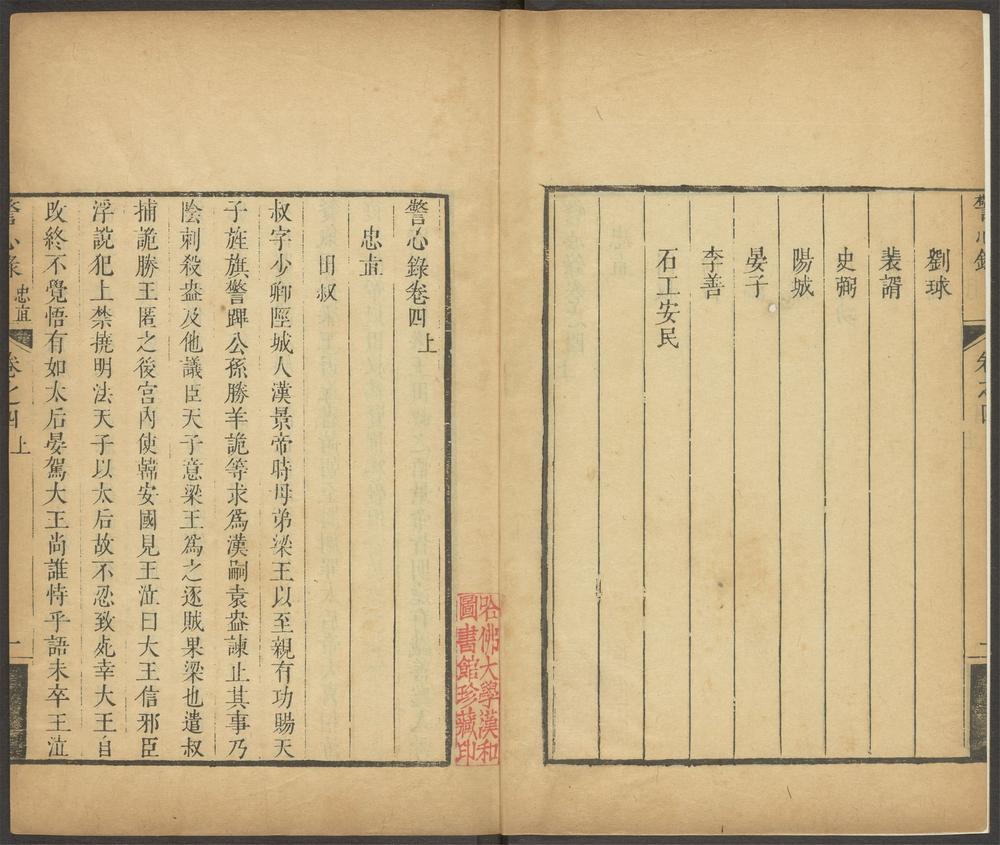 警心錄
卷之四
二
劉球
裴諝
史弼
陽城
晏子
李善
石工安民
哈佛大學漢和
圖書館珍藏印
警心錄卷四上
忠直
田叔
叔字少卿陘城人漢景帝時母弟梁王以至親有功賜天
子旌旗警蹕公孫勝羊詭等求爲漢嗣袁盎諫止其事乃
陰刺殺盎及他議臣天子意梁王爲之逐賊果梁也遣叔
捕詭勝王匿之後宮內使韓安國見王泣曰大王信邪臣
浮說犯上禁撓明法天子以太后故不忍致𠛬幸大王自
改終不覺悟有如太后晏駕大王尚誰恃乎語未卒王泣
警心錄
忠直
卷之四上
一